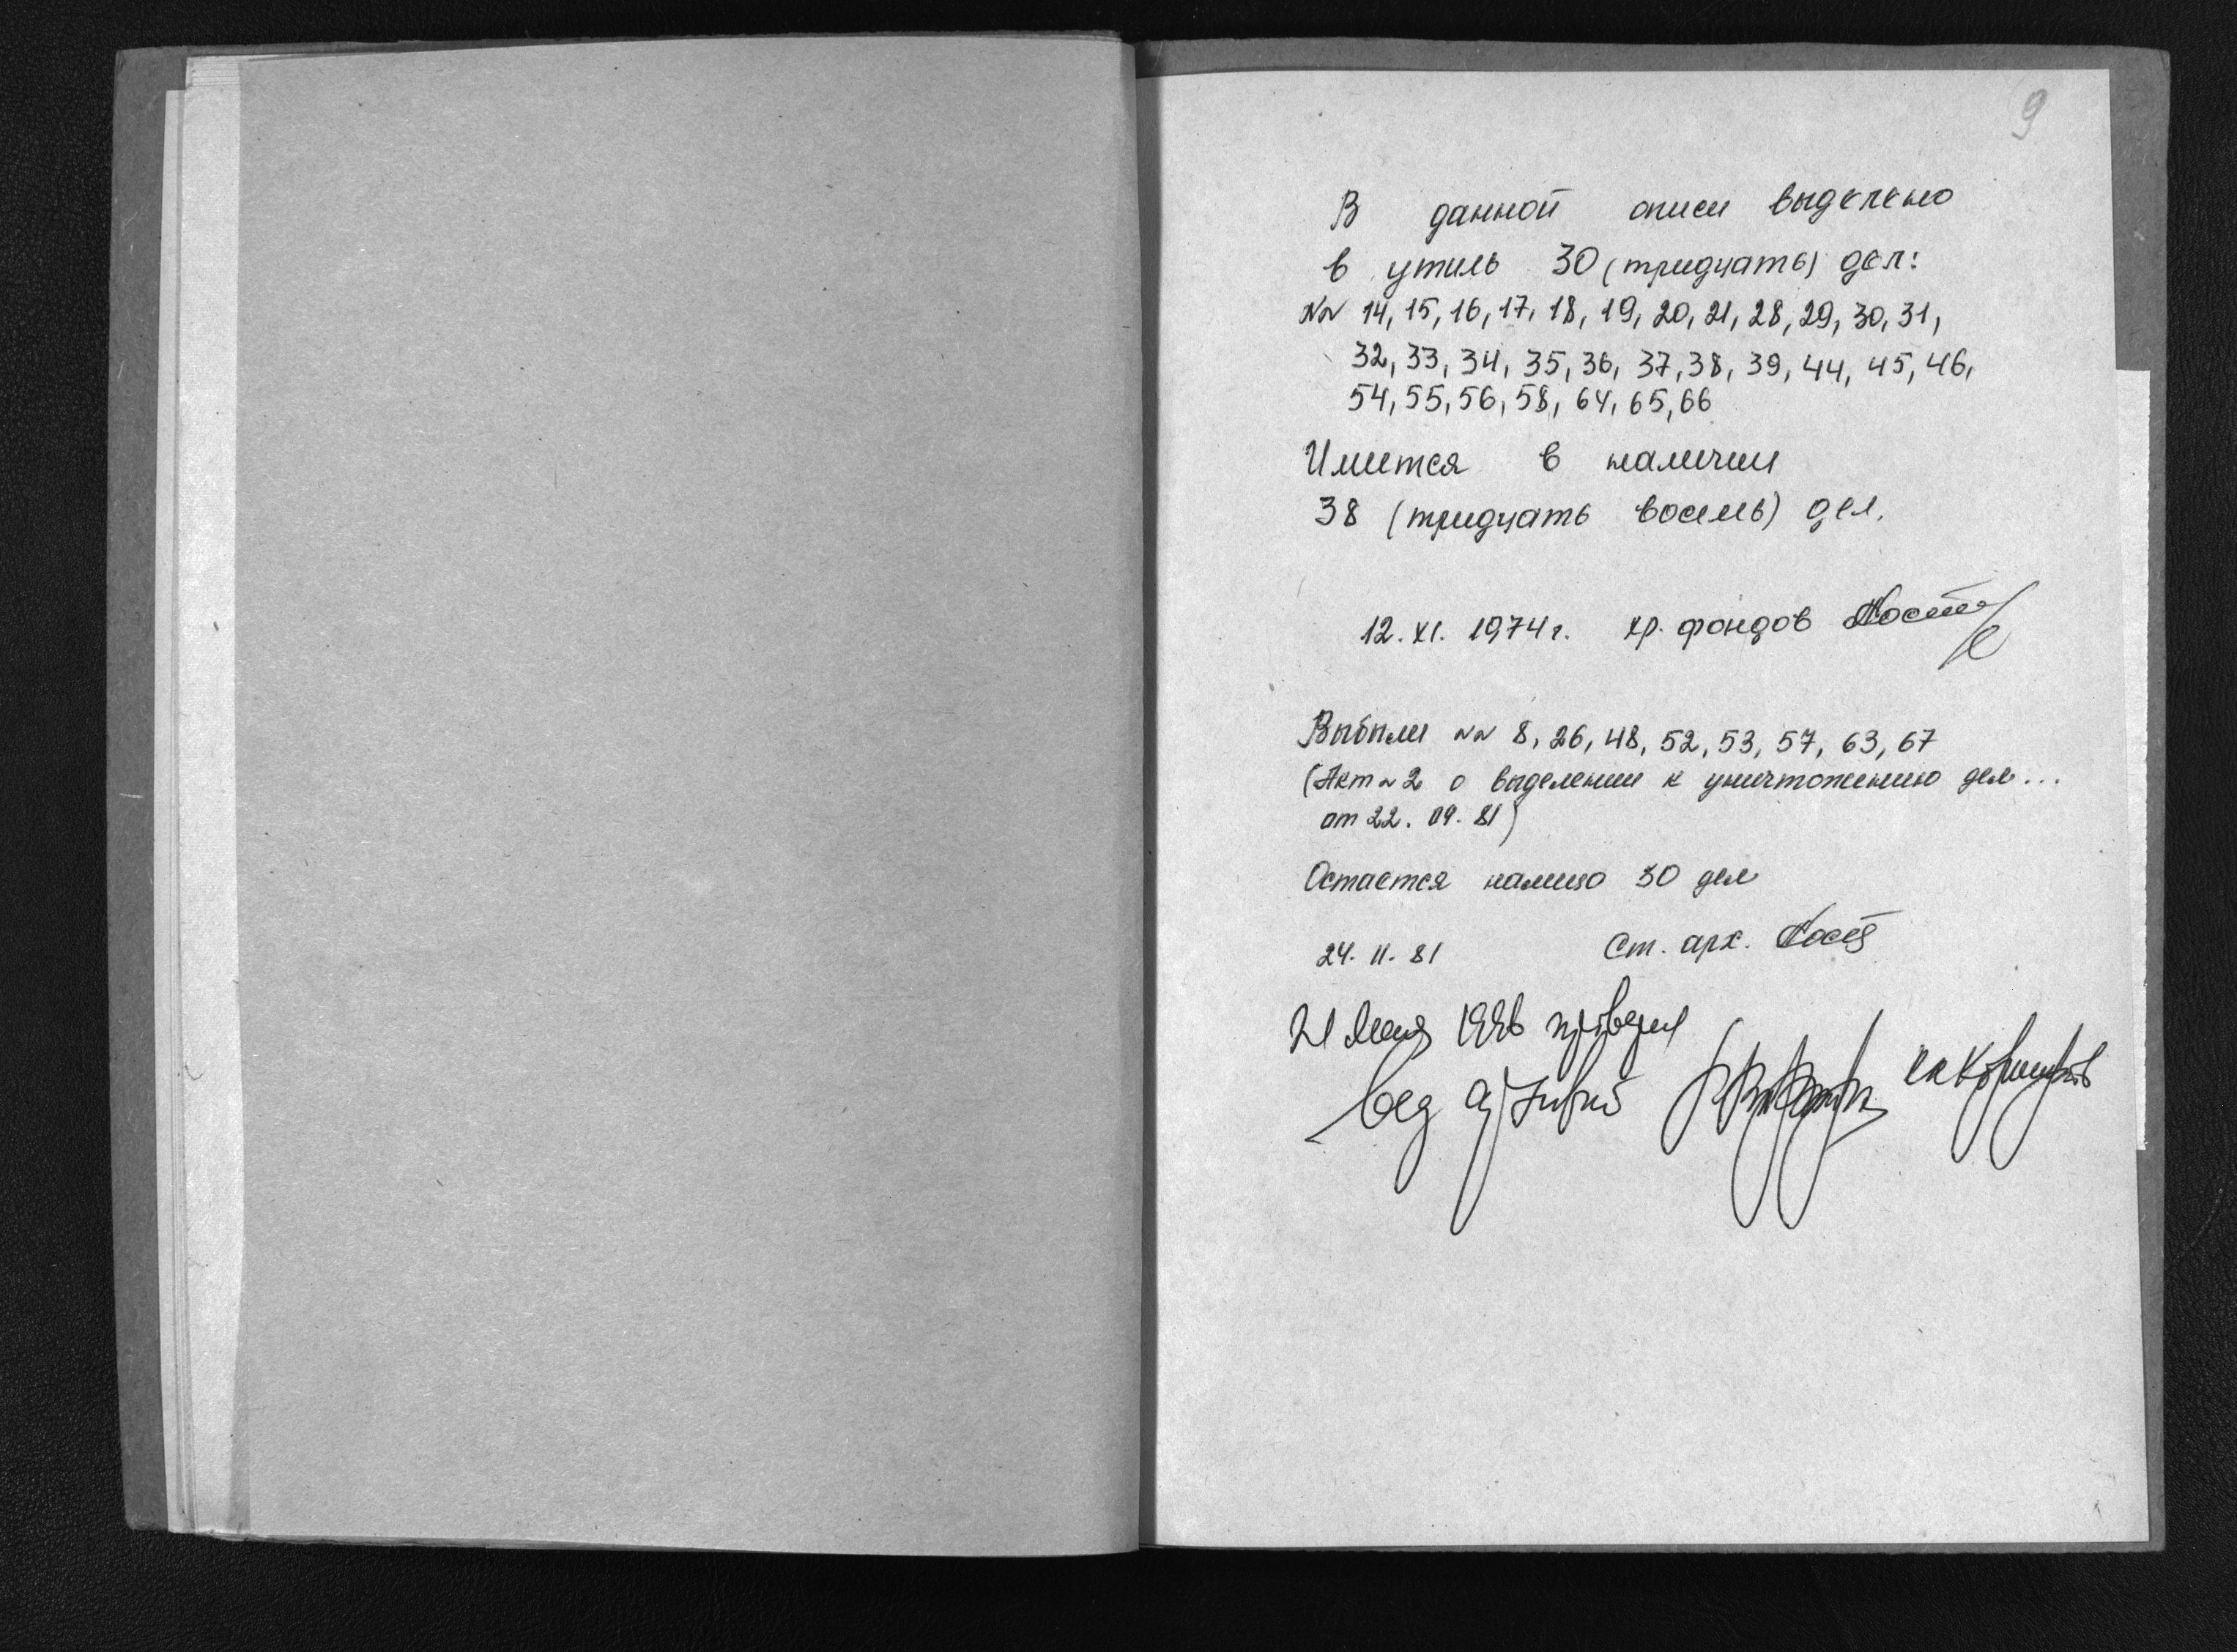 9
В данной описи выделено
в утиль 30 (тридцать) дел:
NN 14, 15, 16, 17, 18, 19, 20, 21, 28, 29, 30, 31,
32, 33, 34, 35, 36, 37, 38, 39, 44, 45, 46,
54, 55, 56, 58, 64, 65, 66
Имется в наличии
38 (тридцать восемь) дел.
12. XI. 1974 г. хр. фондов
Выбыли NN 8, 26, 48, 52, 53, 57, 63, 67
(Акт N 2 о выделении к уничтожению дел...
от 22. 09. 81)
Остается налицо 30 дел
24. 11. 81 Ст. арх.
21 1996 проверил
вед